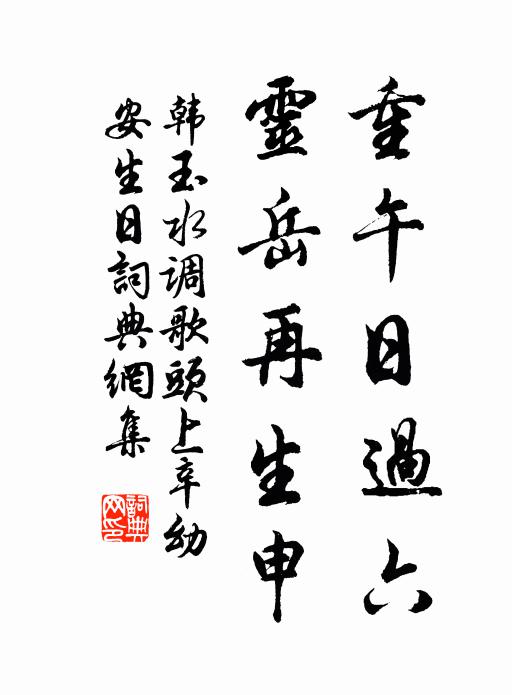 重午日過六
靈岳再生申
韩玉水调歌頭上辛幼
安生日詞典網集
詞典網印